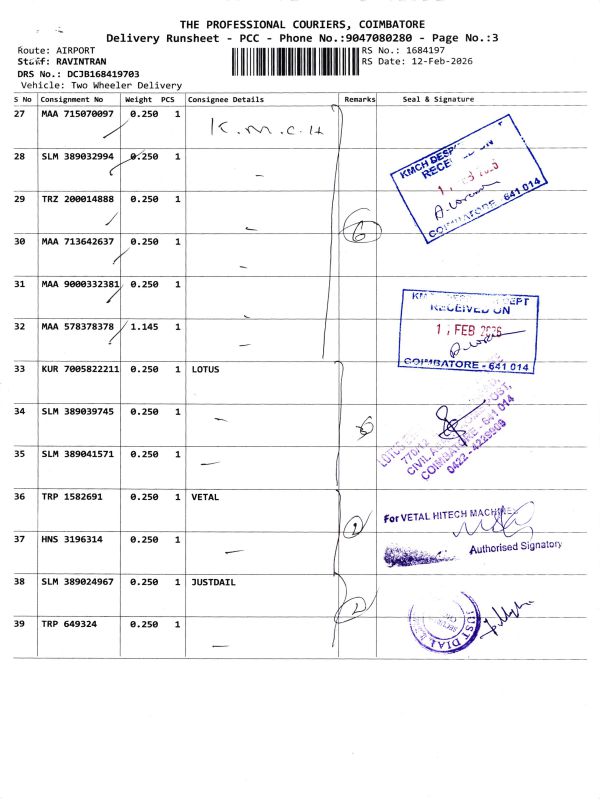 THE PROFESSIONAL COURIERS, COIMBATORE
Delivery Runsheet - PCC - Phone No.:9047080280 - Page No.:3
Route: AIRPORT
RS No.: 1684197
Staff: RAVINTRAN
RS Date: 12-Feb-2026
DRS No.: DCJB168419703
Vehicle: Two Wheeler Delivery
S No Consignment No Weight PCS Consignee Details Remarks Seal & Signature
27 MAA 715070097 0.250 1 K.M.C.H
28 SLM 389032994 0.250 1
KMCH DESP
RECEIVED ON
COIMBATORE - 641 014
29 TRZ 200014888 0.250 1
6
30 MAA 713642637 0.250 1
31 MAA 9000332381 0.250 1
RECEIVED ON
FEB 2026
COIMBATORE - 641 014
32 MAA 578378378 1.145 1
33 KUR 7005822211 0.250 1 LOTUS
34 SLM 389039745 0.250 1
LOTUS
770/12
CIVIL
COIMBATORE - 641 014
0422 - 4239909
35 SLM 389041571 0.250 1
36 TRP 1582691 0.250 1 VETAL
2
For VETAL HITECH MACHINES
Authorised Signatory
37 HNS 3196314 0.250 1
38 SLM 389024967 0.250 1 JUSTDAIL
2
JUST DIAL
SECURITY
39 TRP 649324 0.250 1